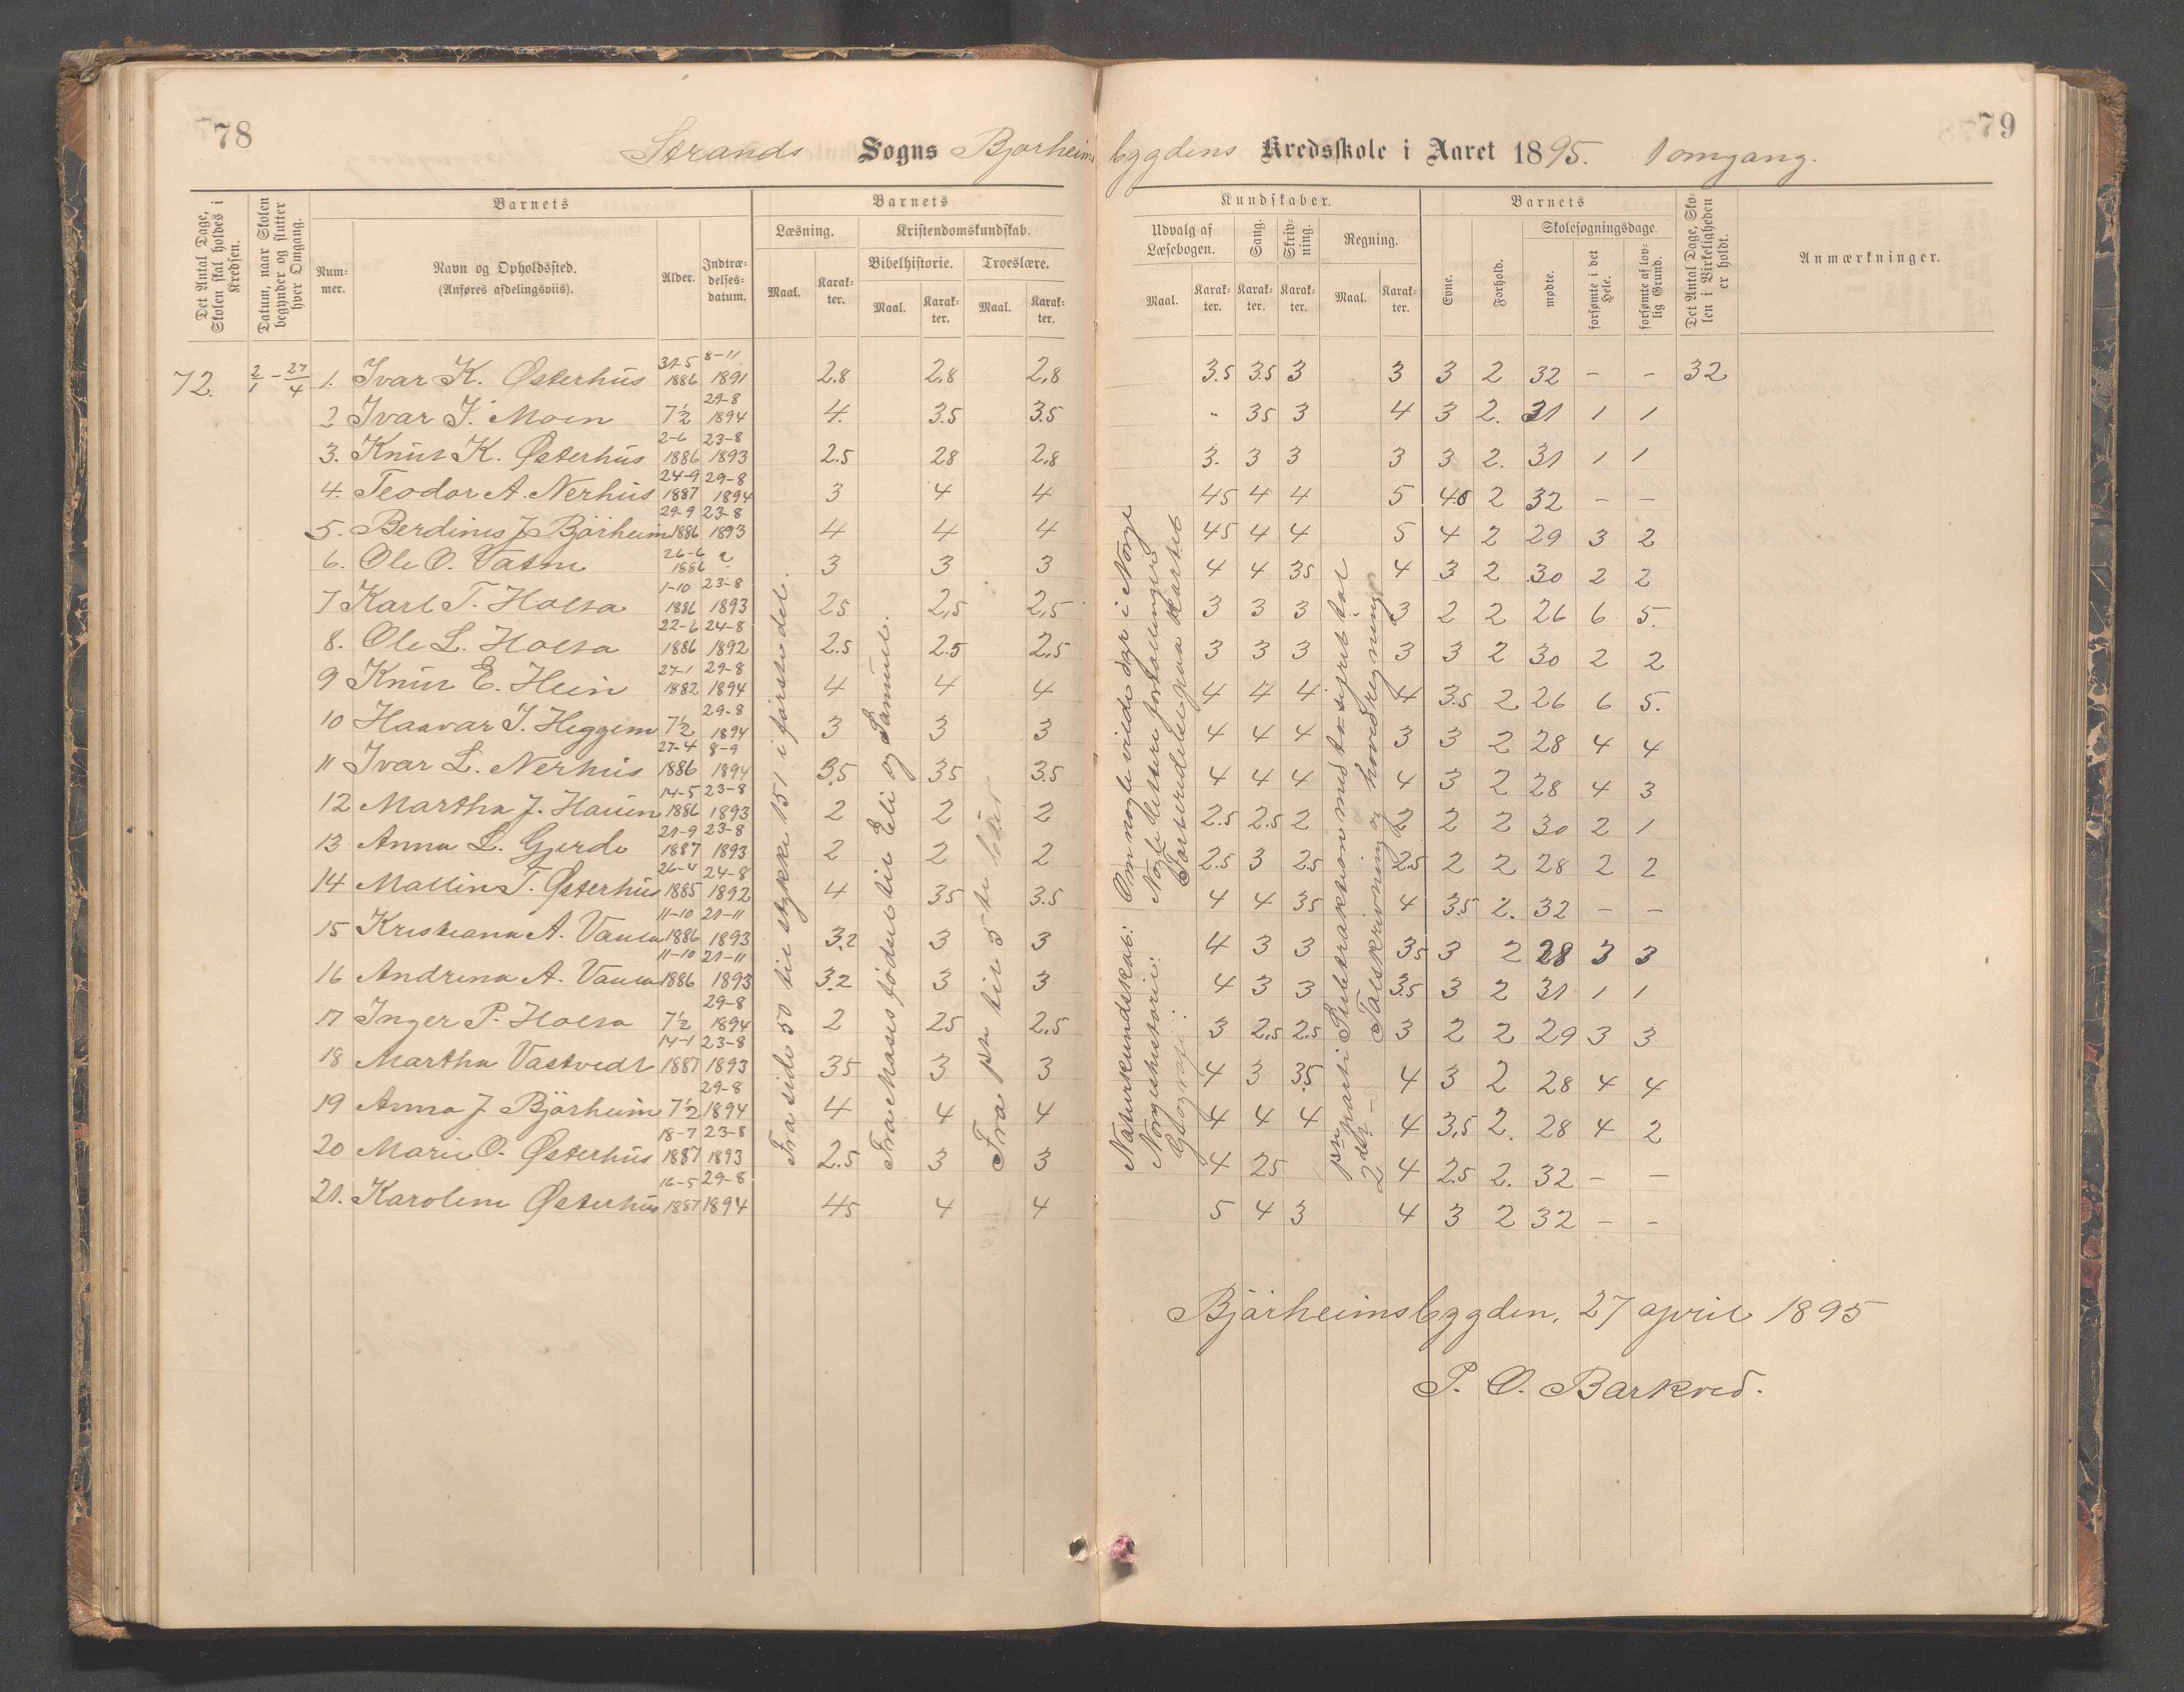 78
79
Strands Sogns Bjorheims bygdens Kredsskole i Aaret 1895. 1 omgang.
Det Antal Dage, Skolen skal holdes i Kredsen.
Datum, naar Skolen begynder og slutter hver Omgang.
Barnets
Nummer.
Navn og Opholdssted. (Anføres afdelingsviis).
Alder.
Indtrædelsesdatum.
Barnets
Læsning.
Maal.
Karakter.
Kristendomskundskab.
Bibelhistorie.
Maal.
Karakter.
Troeslære.
Maal.
Karakter.
Kundskaber.
Udvalg af Læsebogen.
Maal.
Karakter.
Sang.
Karakter.
Skrivning.
Karakter.
Regning.
Maal.
Karakter.
Barnets
Evne.
Forhold.
Skolesøgningsdage.
mødte.
forsømte i det Hele.
forsømte af lovlig Grund.
Det Antal Dage, Skolen i Virkeligheden er holdt.
Anmærkninger.
72. 2/1 - 27/4 1. Ivar K. Østerhus 31-5 1886 8-11 1891 2.8 2,8 2,8 3.5 3.5 3 3 3 2 32 - - 32
2 Ivar J. Moen 7½ 29-8 1894 4. 3.5 3.5 - 35 3 4 3 2. 31 1 1
3. Knut K. Østerhus 2-6 1886 23-8 1893 2.5 28 2,8 3. 3 3 3 3 2. 31 1 1
4. Teodor A. Nerhus 24-9 1887 29-8 1894 3 4 4 45 4 4 5 4.5 2 32 - -
5. Berdines J Bjørheim 29-9 1886 23-8 1893 4 4 4 45 4 4 5 4 2 29 3 2
6. Ole O. Vatne 26-6 1886 ? 3 3 3 4 4 35 4 3 2 30 2 2
7 Karl T. Holta 1-10 1886 23-8 1893 25 2,5 2,5 3 3 3 3 2 2 26 6 5.
8. Ole L. Holta 22-6 1886 24-8 1892 2.5 2.5 2,5 3 3 3 3 3 2 30 2 2
9 Knut E. Hein 27-1 1882 29-8 1894 4 4 4 4 4 4. 4 3.5 2 26 6 5.
10 Haavar I. Heggem 7½ 29-8 1894 3 3 3 4 4 4 3 3 2 28 4 4
11 Ivar L. Nerhus 27-4 1886 8-9 1894 3.5 35 3.5 4 4 4 4 3 2 28 4 3
12 Martha J. Hauen 14-5 1886 23-8 1893 2 2 2 2.5 2.5 2 2 2 2 30 2 1
13 Anna L. Gjerde 21-9 1887 23-8 1893 2 2 2 2.5 3 2.5 2.5 2 2 28 2 2
14 Mallins T. Østerhus 26-4 1885 24-8 1892 4 35 3.5 4 4 35 4 3.5 2. 32 - -
15 Kristiana A. Vaula 11-10 1886 21-11 1893 3.2 3 3 4 3 3 35 3 2 28 3 3
16 Andrina A. Vaula 11-10 1886 21-11 1893 3.2 3 3 4 3 3 3.5 3 2 31 1 1
17 Inger P. Holta 7½ 29-8 1894 2 25 2,5 3 2,5 2.5 3 2 2 29 3 3
18 Martha Vastvedt 14-1 1887 23-8 1893 35 3 3 4 3 3.5 4 3 2 28 4 4
19 Anna J Bjørheim 7½ 29-8 1894 4 4 4 4 4 4 4 3,5 2. 28 4 2
20 Marie O. Østerhus 18-7 1887 23-8 1893 2.5 3 3 4 25 4 2.5 2. 32 - -
21. Karoline Østerhus 16-5 1887 29-8 1894 45 4 4 5 4 3 4 3 2 32 - -
Fra side 50 til stykke 151 i første del.
Fra Moses fødsel til Eli og Samuel.
Fra pn til 5te bud
Naturkundskab: Om nogle vilde dyr i Norge
Norgeshistorie: Nogle lettere fortællinger
Geografi: Forberedelse paa kartet
pn parti Subtraktion med tosifret tal
2det — Talskrivning og hovedregning
Bjørheimsbygden, 27 april 1895
P. O. Barkved.